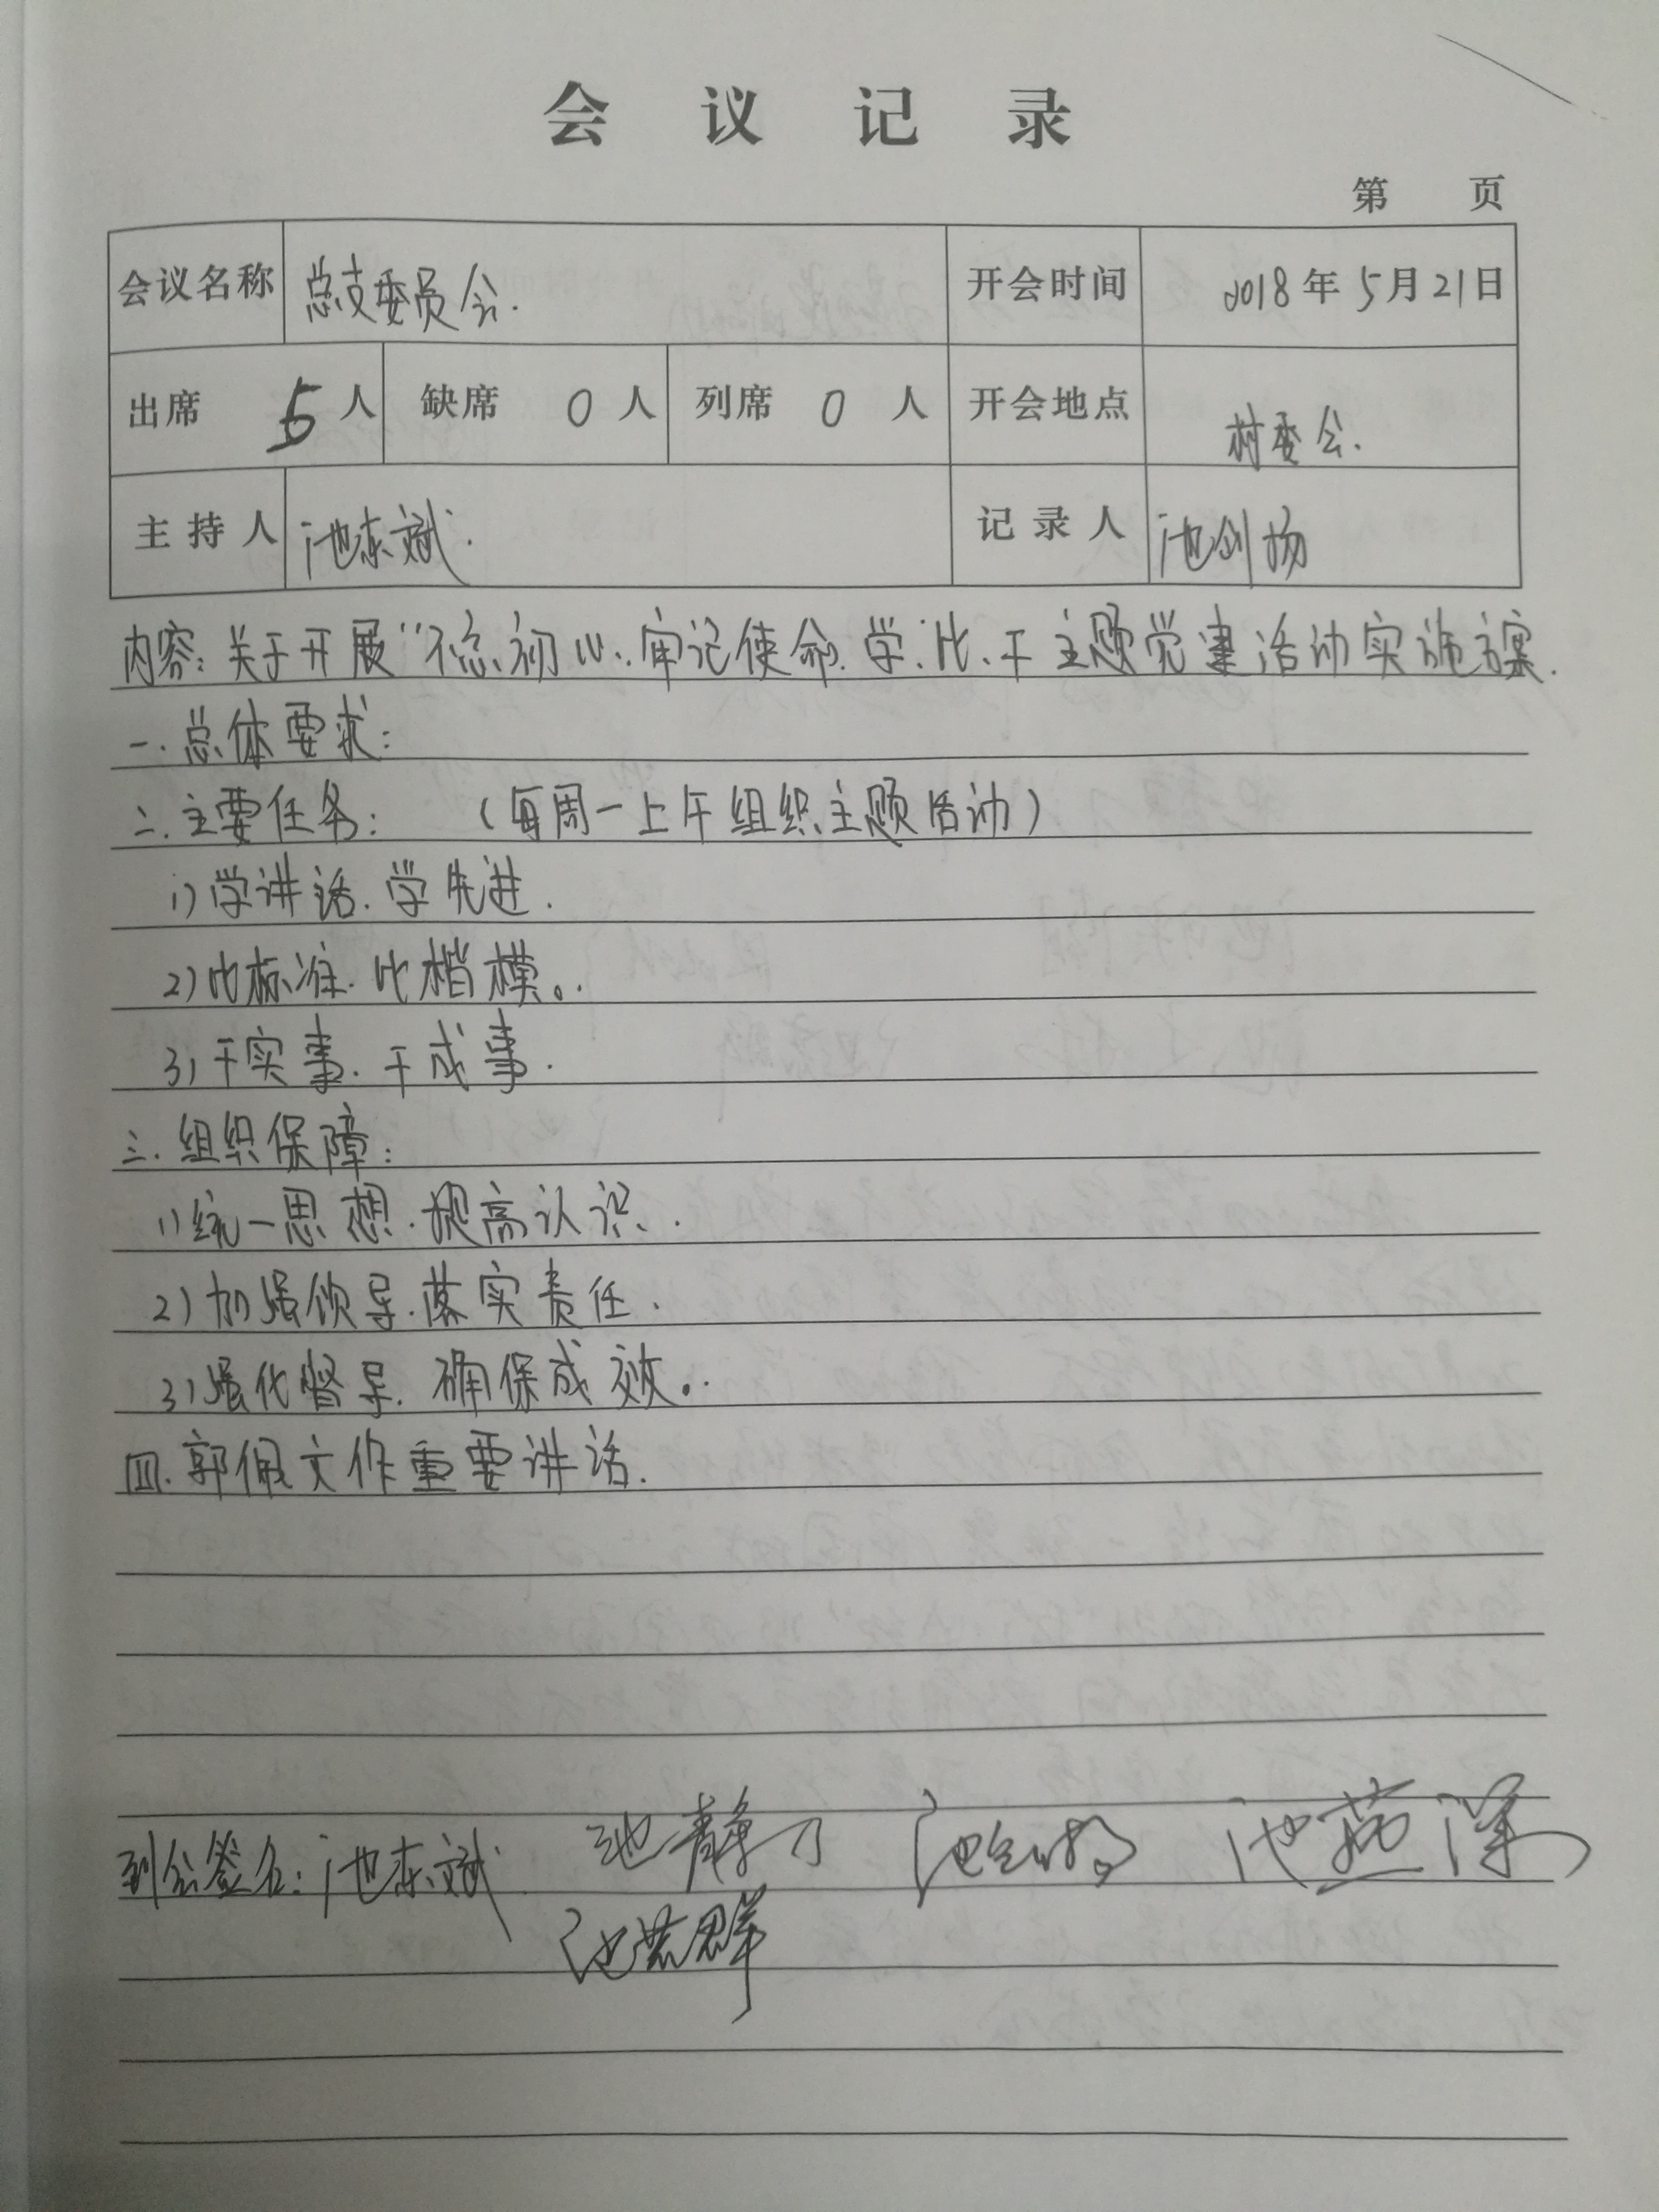 会议记录
第 页
会议名称 总支委员会. 开会时间 2018年5月21日
出席 5人 缺席 0人 列席 0人 开会地点 村委会.
主持人 池东斌. 记录人 池剑扬
内容:关于开展"不忘初心.牢记使命.学、比、干主题党建活动实施方案.
一.总体要求:
二.主要任务: (每周一上午组织主题活动)
1)学讲话.学先进.
2)比标准.比楷模。.
3)干实事.干成事.
三.组织保障:
1)统一思想.提高认识.
2)加强领导.落实责任.
3)强化督导.确保成效。.
四.郭佩文作重要讲话.
到会签名:池东斌 池静 池剑扬 池燕萍
池 群